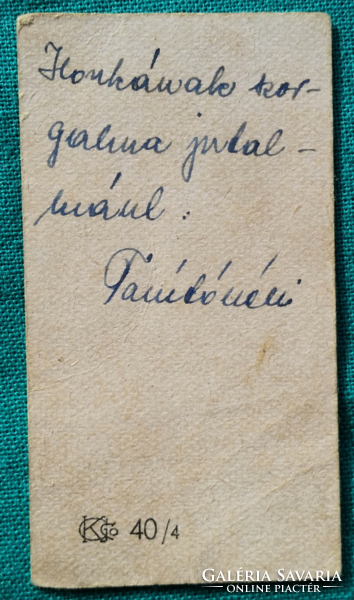 Ilonkának szor-
galma jutal-
mául:
Tanítónéni
40/4
GALÉRIA SAVARIA
ONLINE PIACTÉR